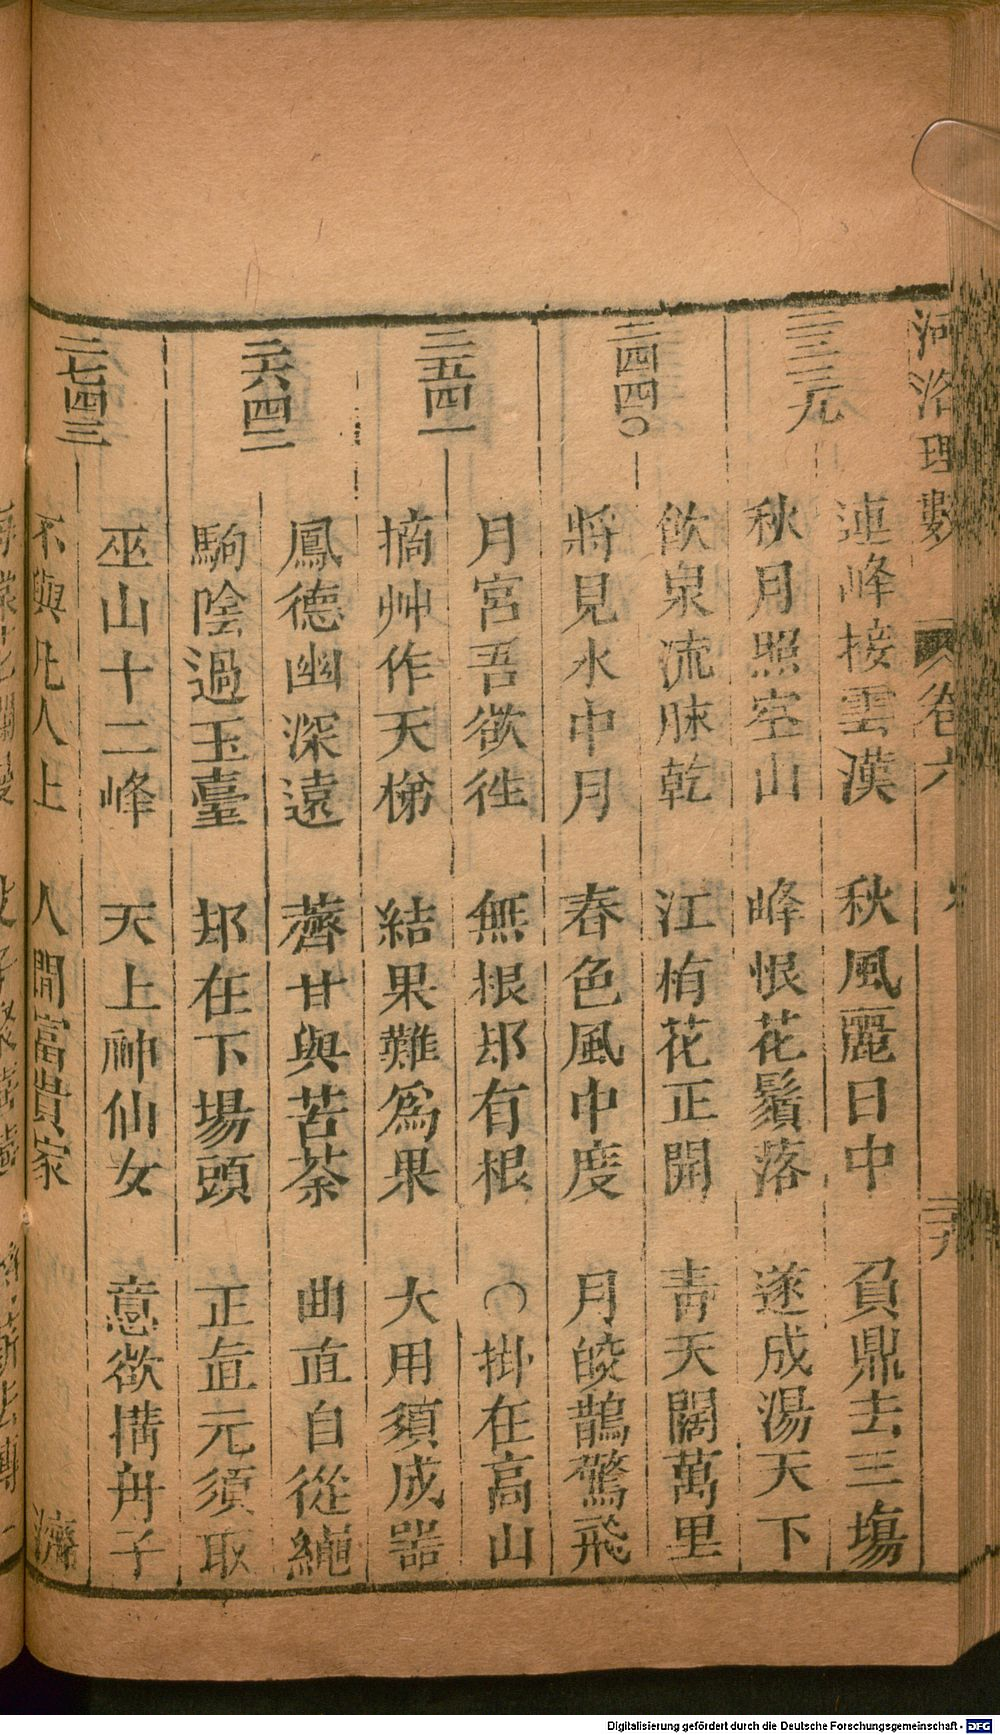 河洛理數 卷六 三九
三三三九
連峰接雲漢 秋風麗日中 負鼎去三場
秋月照空山 峰恨花鬚落 遂成湯天下
三四四〇
飲泉流脉乾 江梅花正開 青天闊萬里
將見水中月 春色風中度 月皎鵲驚飛
三五四一
月宮吾欲徃 無根却有根 〇掛在高山
摘艸作天梯 結果難為果 大用須成器
三六四二
鳳德幽深遠 薺甘與苦荼 曲直自從繩
駒陰過玉臺 却在下場頭 正直元須取
三七四三
巫山十二峰 天上神仙女 意欲搆舟子
不與凡人上 人間富貴家 濟
Digitalisierung gefördert durch die Deutsche Forschungsgemeinschaft - DFG